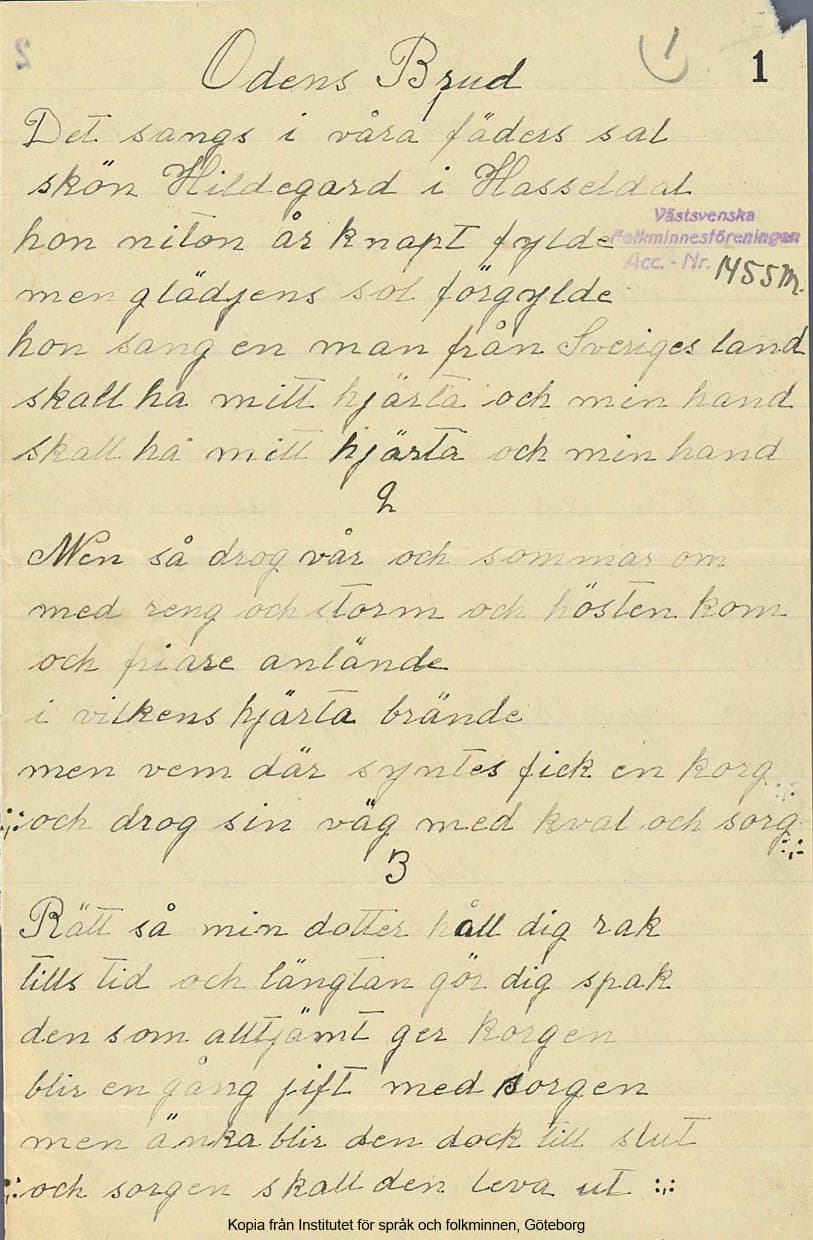 1
1
Odens Brud
Det sangs i våra fäders sal
skön Hildegard i Hasseldal
hon niton år knapt fylde
Västsvenska
Folkminnesföreningen
Acc. - Nr. 1455 M.
men glädjens sol förgylde
hon sang en man från Sveriges land
skall ha mitt hjärta och min hand
skall ha mitt hjärta och min hand
2
Men så drog vår och sommar om
med reng och storm och hösten kom
och friare anlände
i vilkens hjärta brände
men vem där syntes fick en korg
:,: och drog sin väg med kval och sorg :,:
3
Rätt så min dotter håll dig rak
tills tid och längtan gör dig spak
den som alltjämt ger korgen
blir en gång jift med sorgen
men änka blir den dock till slut
:,: och sorgen skall den leva ut :,:
Kopia från Institutet för språk och folkminnen, Göteborg